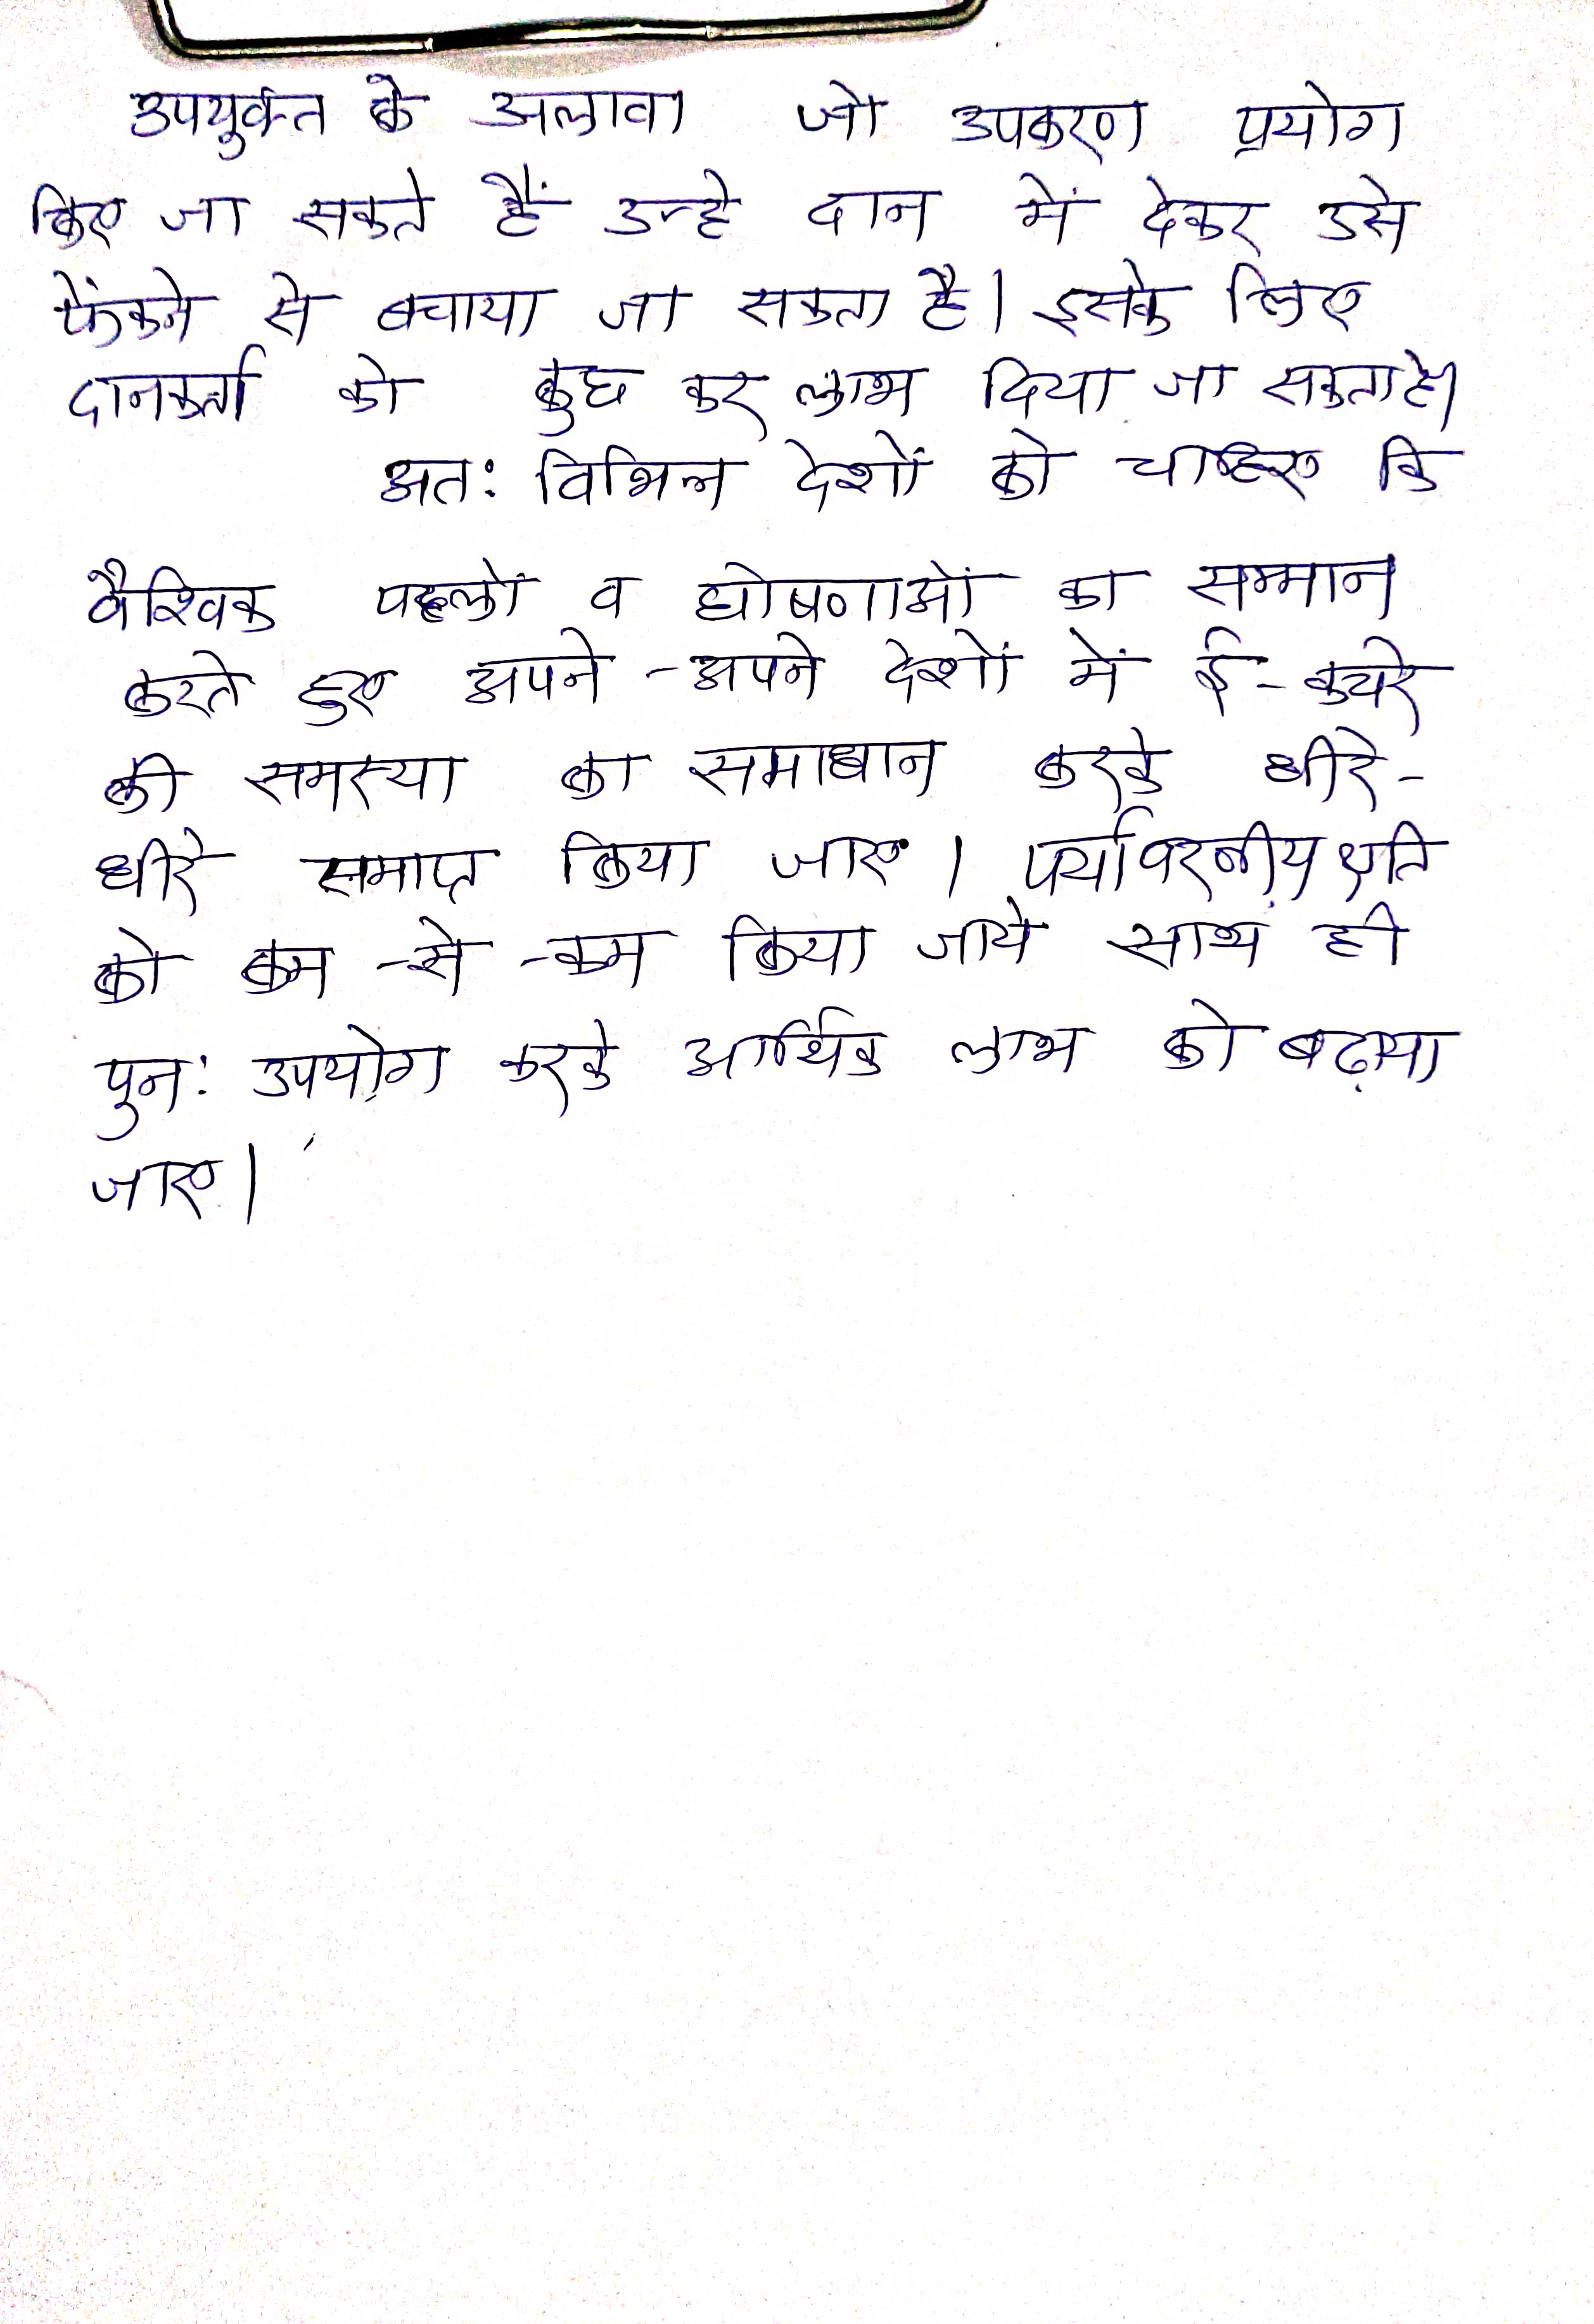 उपयुक्त के अलावा जो उपकरण प्रयोग
किए जा सकते हैं उन्हे दान में देकर उसे
फेंकने से बचाया जा सकता है। इसके लिए
दानकर्ता को कुछ कर लाभ दिया जा सकता है।
अतः विभिन्न देशों को चाहिए कि
वैश्विक पहलों व घोषणाओं का सम्मान
करते हुए अपने-अपने देशों में ई-कचरे
की समस्या का समाधान करके धीरे-
धीरे समाप्त किया जाए। पर्यावरनीय क्षति
को कम-से-कम किया जाये साथ ही
पुनः उपयोग करके आर्थिक लाभ को बढ़ाया
जाए।